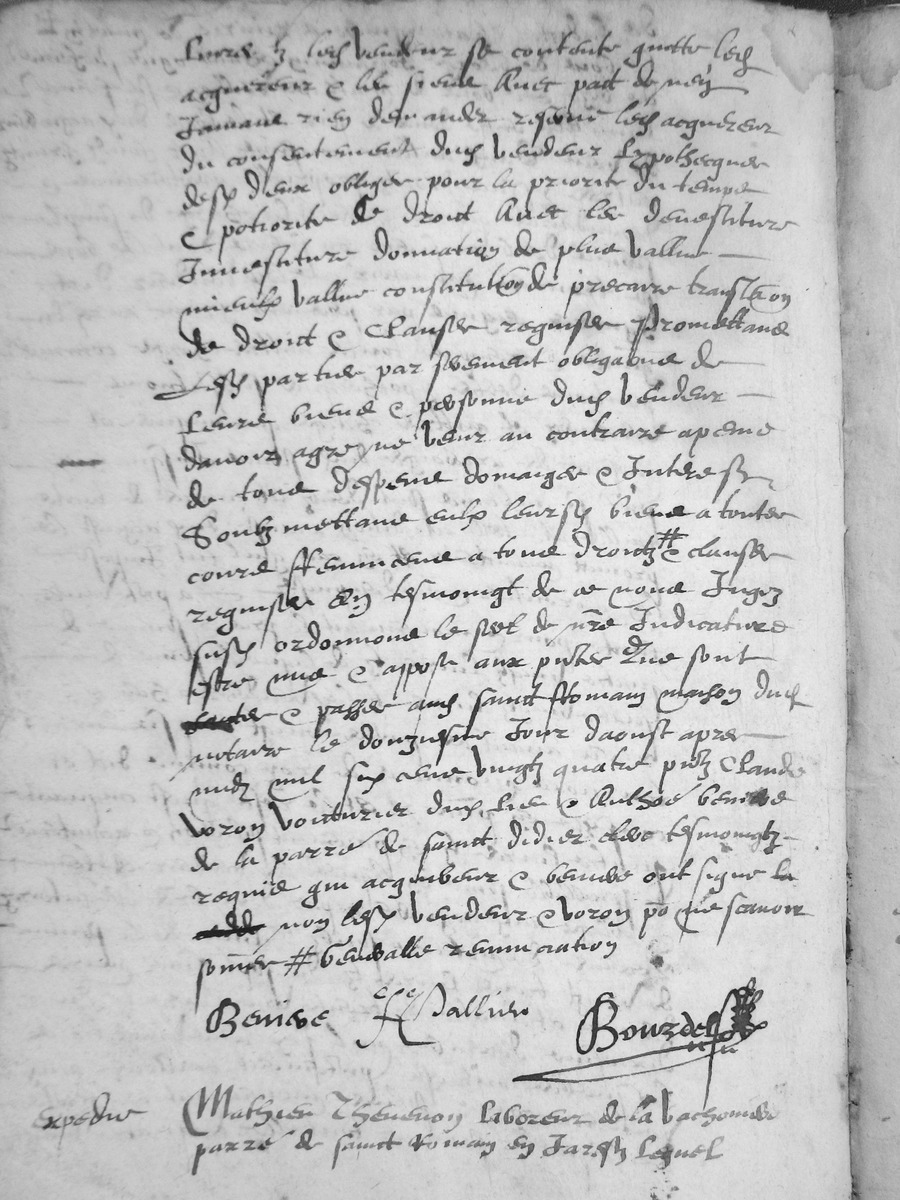 livres tz lesd vendeur se contente quitte lesd
acquereur & les siens Avec pact de ney
Jamais rien demander reserve lesd acquereur
du consentement dud vendeur hypothecquer
desd deux obliges pour la priorite du temps
& potiorite de droict Avec les devestiture
Investiture donnation de plus vallue
mieulx vallue constitution de precaire translaon
de droict & Clauses requises Promettans
Lesd parties par serement obligaons de
Leurs biens & personne dud vendeur
davoir agre ne venir au contraire a peine
de tous despens domaiges & Interestz
Soubz mettans eulx leursd biens a toutes
cours Renuncens a tous droictz # & clauses
requises En tesmoingt de ce nous Juge
susd ordonnons le seel de nre Judicature
estre mis & appose aux pntes Que sont
& passees aud sainct Romain maison dud
notaire le douziesme Jour daoust apres
midy mil six cens vingtz quatre pntz Claude
Voron voiturier dud lieu & Anthoe benieve
de la parre de sainct didier tesmoingtz
requis qui acquereur & benieve ont signe la
non lesd vendeur & voron po ne scavoir
sommes # Generalle renunciation
Benieve Vallier Bourdel
Expedie Mathieu Thevenon laboreur de la bachonniere
parre de sainct Romain en Jarestz Lequel